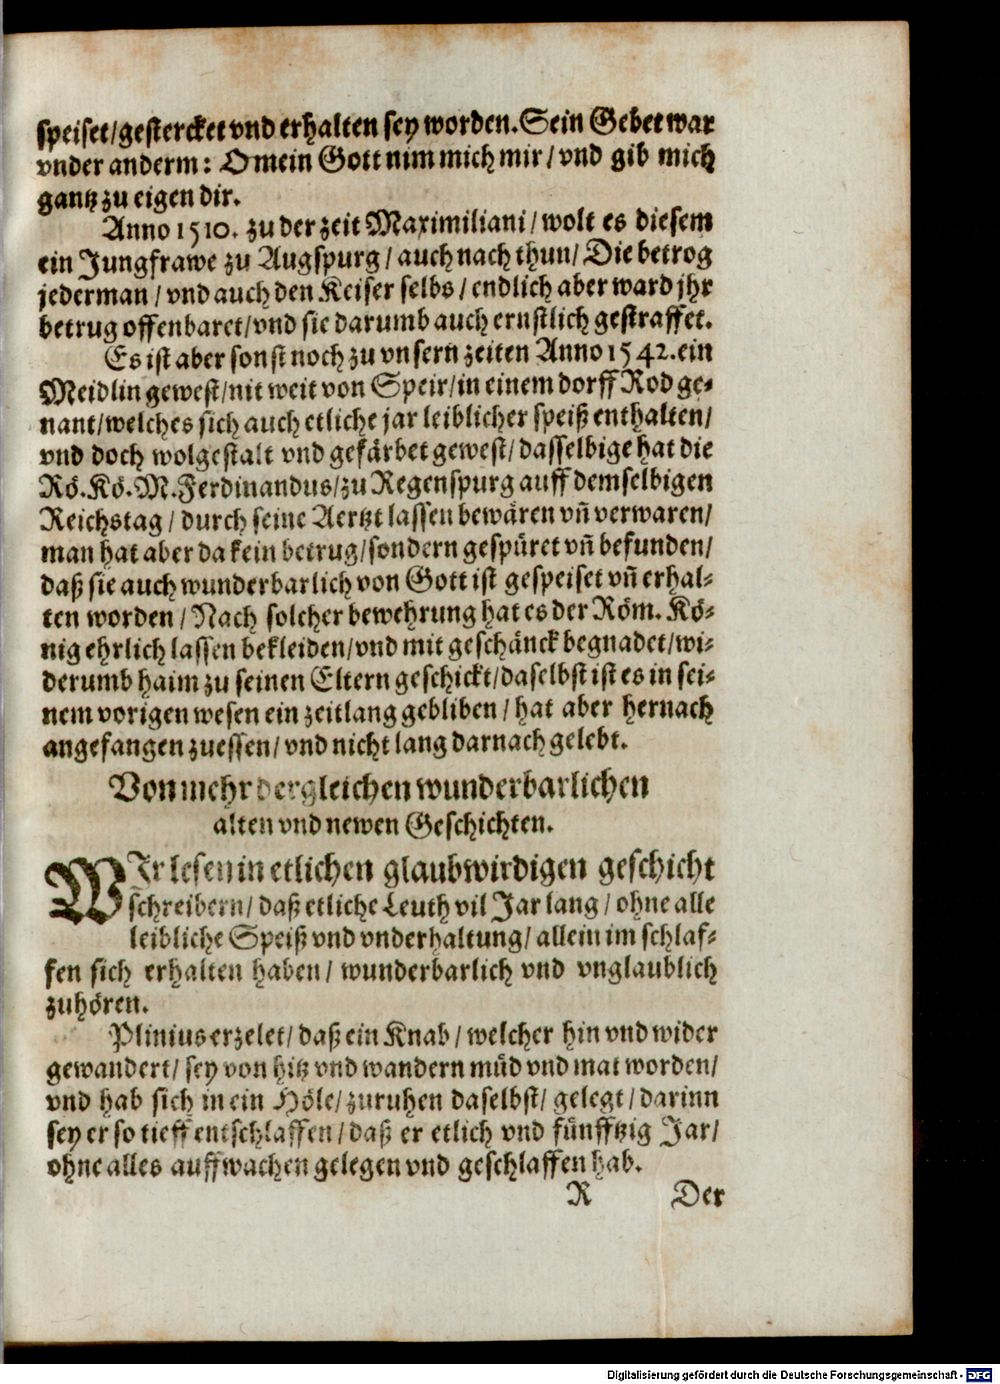 speiset/gestercket vnd erhalten sey worden. Sein Gebet war
vnder anderm: O mein Gott nim mich mir/vnd gib mich
gantz zu eigen dir.
Anno 1510. zu der zeit Maximiliani/wolt es diesem
ein Jungfrawe zu Augspurg/auch nach thun/Die betrog
jederman/vnd auch den Keiser selbs/endlich aber ward jhr
betrug offenbaret/vnd sie darumb auch ernstlich gestraffet.
Es ist aber sonst noch zu vnsern zeiten Anno 1542. ein
Meidlin gewest/nit weit von Speir/in einem dorff Rod ge-
nant/welches sich auch etliche jar leiblicher speiß enthalten/
vnd doch wolgestalt vnd gefärbet gewest/dasselbige hat die
Rö. Kö. M. Ferdinandus/zu Regenspurg auff demselbigen
Reichstag/durch seine Aertzt lassen bewären vñ verwaren/
man hat aber da kein betrug/sondern gespüret vñ befunden/
daß sie auch wunderbarlich von Gott ist gespeiset vñ erhal-
ten worden/Nach solcher bewehrung hat es der Röm. Kö-
nig ehrlich lassen bekleiden/vnd mit geschänck begnadet/wi-
derumb haim zu seinen Eltern geschickt/daselbst ist es in sei-
nem vorigen wesen ein zeitlang gebliben/hat aber hernach
angefangen zuessen/vnd nicht lang darnach gelebt.
Von mehr dergleichen wunderbarlichen
alten vnd newen Geschichten.
WIr lesen in etlichen glaubwirdigen geschicht
schreibern/daß etliche Leuth vil Jar lang/ohne alle
leibliche Speiß vnd vnderhaltung/allein im schlaf-
fen sich erhalten haben/wunderbarlich vnd vnglaublich
zuhören.
Plinius erzelet/daß ein Knab/welcher hin vnd wider
gewandert/sey von hitz vnd wandern müd vnd mat worden/
vnd hab sich in ein Höle/zuruhen daselbst/gelegt/darinn
sey er so tieff entschlaffen/daß er etlich vnd fünfftzig Jar/
ohne alles auffwachen gelegen vnd geschlaffen hab.
R Der
Digitalisierung gefördert durch die Deutsche Forschungsgemeinschaft - DFG